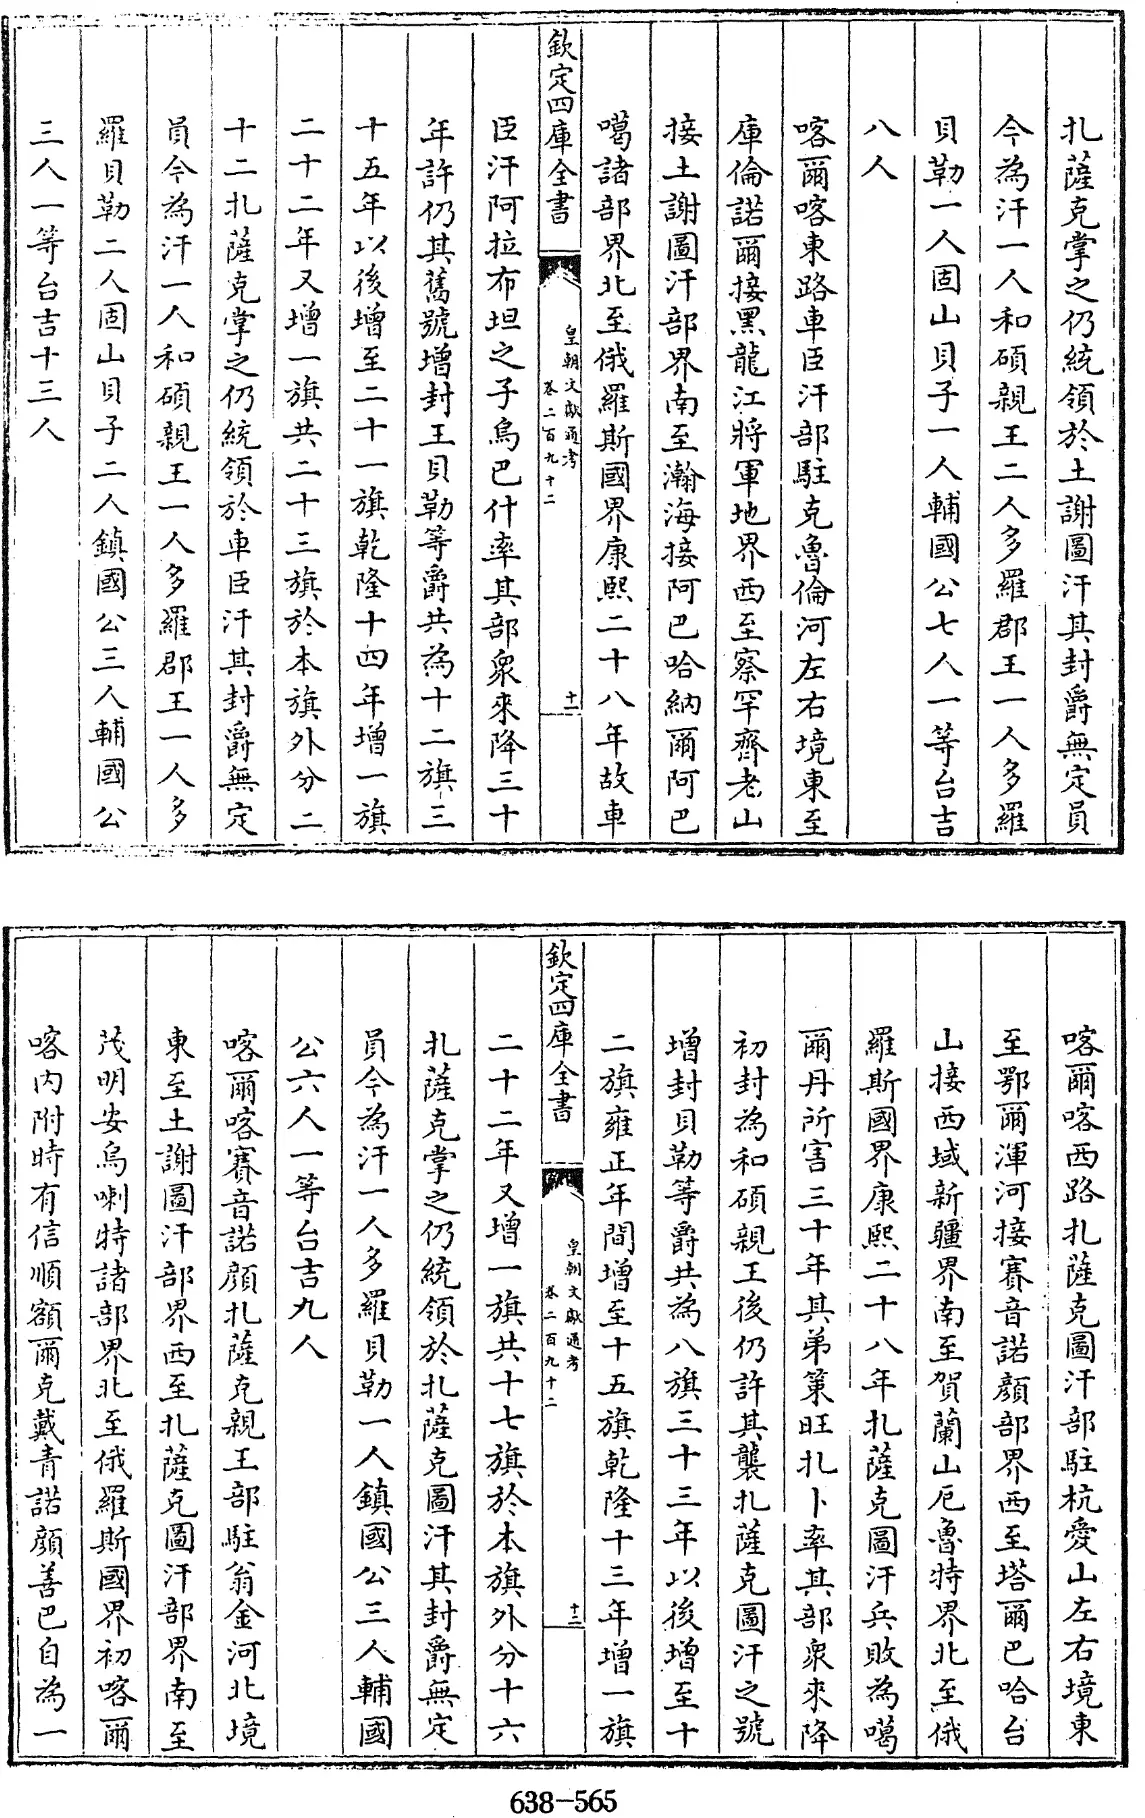 扎薩克掌之仍統領於土謝圖汗其封爵無定員
今為汗一人和碩親王二人多羅郡王一人多羅
貝勒一人固山貝子一人輔國公七人一等台吉
八人
喀爾喀東路車臣汗部駐克魯倫河左右境東至
庫倫諾爾接黑龍江將軍地界西至察罕齊老山
接土謝圖汗部界南至瀚海接阿巴哈納爾阿巴
噶諸部界北至俄羅斯國界康熙二十八年故車
欽定四庫全書
皇朝文獻通考
卷二百九十二
十一
臣汗阿拉布坦之子烏巴什率其部衆來降三十
年許仍其舊號增封王貝勒等爵共為十二旗三
十五年以後增至二十一旗乾隆十四年增一旗
二十二年又增一旗共二十三旗於本旗外分二
十二扎薩克掌之仍統領於車臣汗其封爵無定
員今為汗一人和碩親王一人多羅郡王一人多
羅貝勒二人固山貝子二人鎮國公三人輔國公
三人一等台吉十三人
喀爾喀西路扎薩克圖汗部駐杭愛山左右境東
至鄂爾渾河接賽音諾顏部界西至塔爾巴哈台
山接西域新疆界南至賀蘭山厄魯特界北至俄
羅斯國界康熙二十八年扎薩克圖汗兵敗為噶
爾丹所害三十年其弟策旺扎卜率其部衆來降
初封為和碩親王後仍許其襲扎薩克圖汗之號
增封貝勒等爵共為八旗三十三年以後增至十
二旗雍正年間增至十五旗乾隆十三年增一旗
欽定四庫全書
皇朝文獻通考
卷二百九十二
十二
二十二年又增一旗共十七旗於本旗外分十六
扎薩克掌之仍統領於扎薩克圖汗其封爵無定
員今為汗一人多羅貝勒一人鎮國公三人輔國
公六人一等台吉九人
喀爾喀賽音諾顏扎薩克親王部駐翁金河北境
東至土謝圖汗部界西至扎薩克圖汗部界南至
茂明安烏喇特諸部界北至俄羅斯國界初喀爾
喀內附時有信順額爾克戴青諾顏善巴自為一
638-565